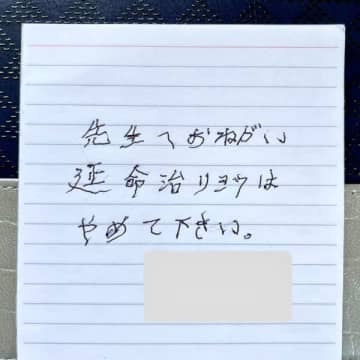 先生へおねがい
延命治リョウは
やめて下さい。